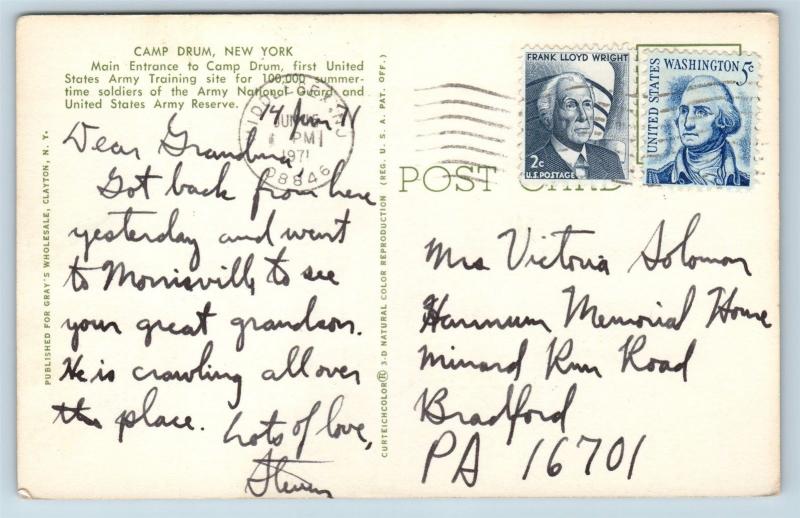 CAMP DRUM, NEW YORK
Main Entrance to Camp Drum, first United
States Army Training site for 100,000 summer-
time soldiers of the Army National Guard and
United States Army Reserve.
14 Jun 71
Dear Grandma,
Got back from here
yesterday and went
to Morrisville to see
your great grandson.
He is crawling all over
the place. Lots of love,
Steven
PUBLISHED FOR GRAY'S WHOLESALE, CLAYTON, N. Y.
CURTEICHCOLOR® 3-D NATURAL COLOR REPRODUCTION (REG. U. S. A. PAT. OFF.)
JUN
PM
1971
08846
FRANK LLOYD WRIGHT
2c
U.S. POSTAGE
UNITED STATES
WASHINGTON 5c
POST CARD
Mrs Victoria Solomon
Hannum Memorial Home
Minard Run Road
Bradford
PA 16701